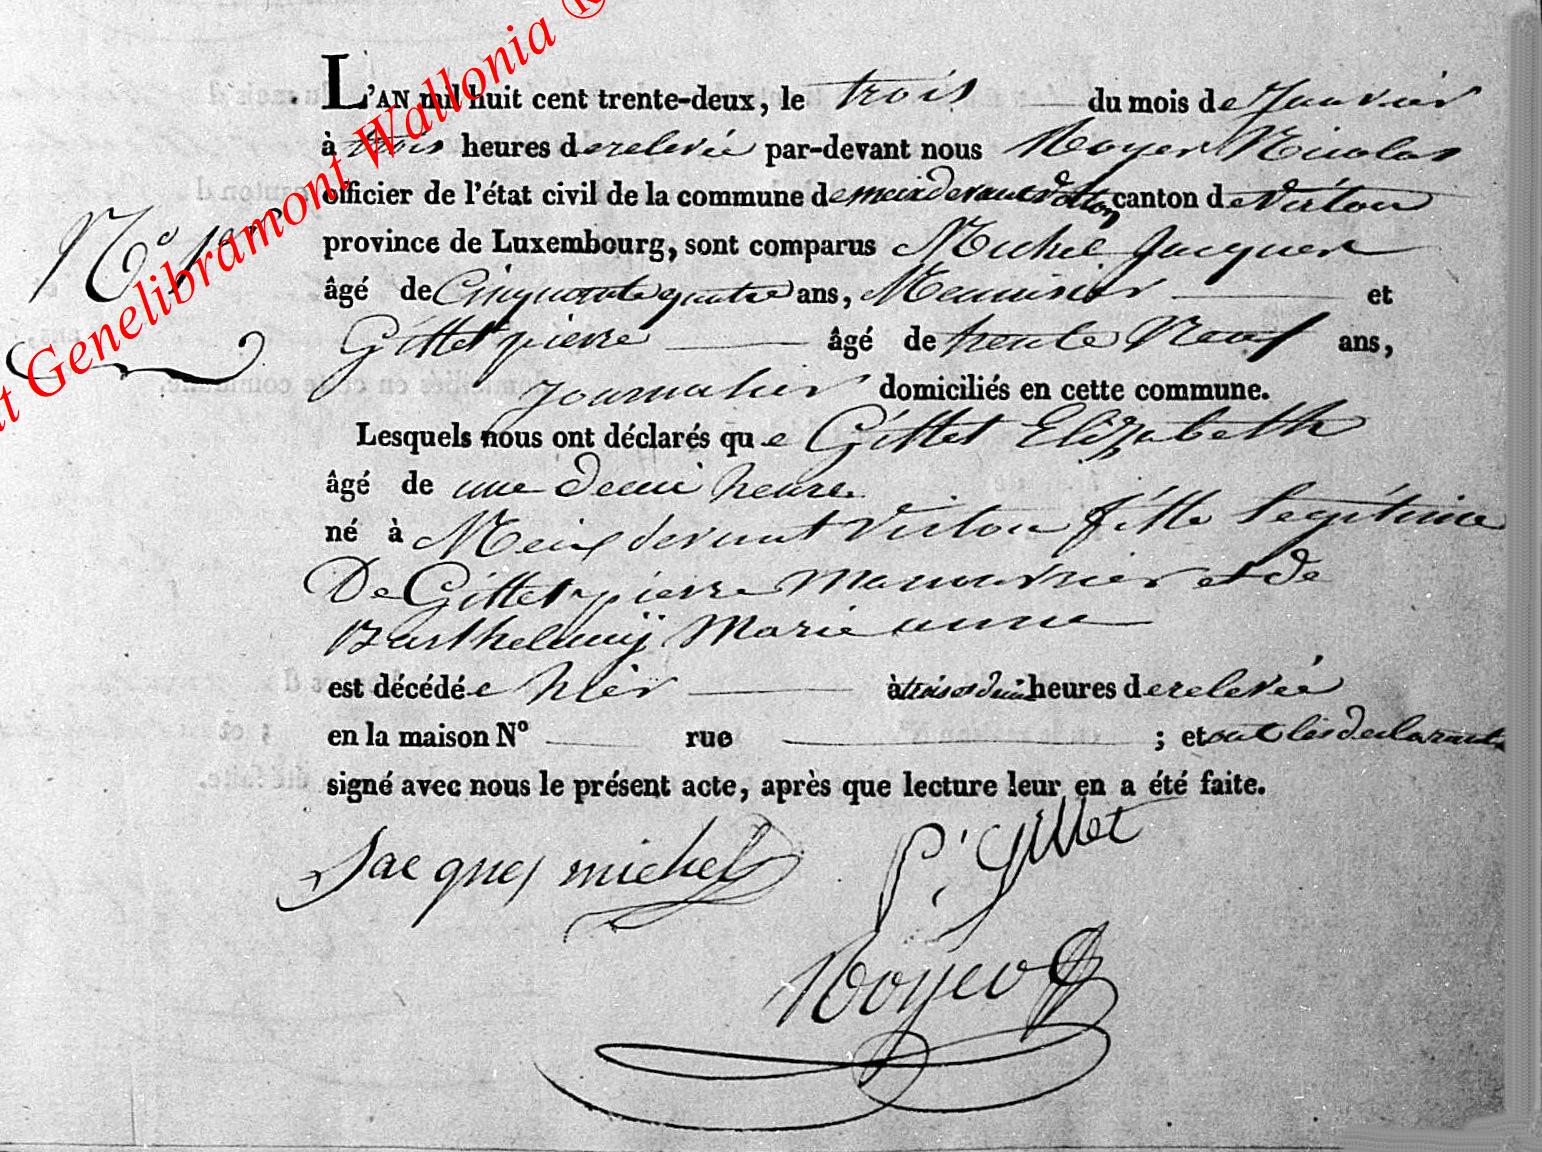 t Genelibramont Wallonia ®
L'AN mil huit cent trente-deux, le trois du mois de Janvier
à trois heures de relevée par-devant nous Noyer Nicolas
officier de l'état civil de la commune de meix devant virton canton de virton
province de Luxembourg, sont comparus Michel Jacques
N° 1er
âgé de Cinquante quatre ans, Menuisier et
Gillet pierre âgé de trente Neuf ans,
Journalier domiciliés en cette commune.
Lesquels nous ont déclarés que Gillet Elizabeth
âgé de une demi heure
né à Meix devant virton fille legitime
De Gillet pierre Manouvrier et de
Barthelemÿ Marie anne
est décédée hier à trois et demi heures de relevée
en la maison N° rue ; et ont les declarants
signé avec nous le présent acte, après que lecture leur en a été faite.
Jacques michel P. Gillet
Noÿer